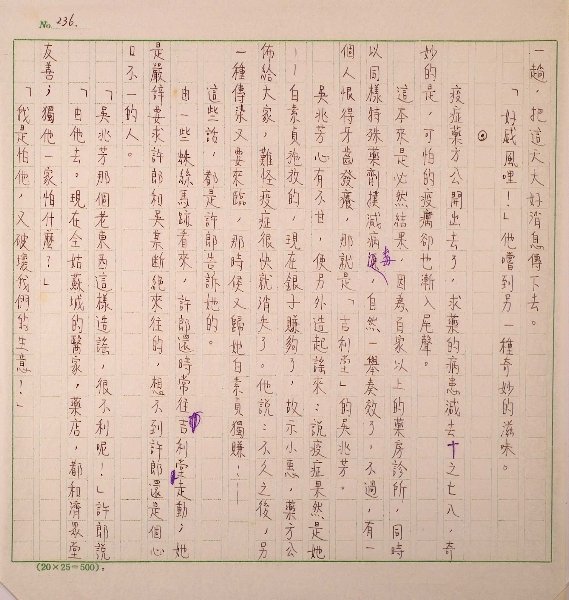 No. 236.
一趟，把這天大好消息傳下去。
「好威風哩！」他嚐到另一種奇妙的滋味。
◎
疫症藥方公開出去了，求藥的病患減去十之七八，奇
妙的是，可怕的疫癘卻也漸入尾聲。
這本來是必然結果，因為百家以上的藥房診所，同時
以同樣特殊藥劑撲滅病毒，自然一舉奏效了，不過，有一
個人恨得牙齒發癢，那就是「吉利堂」的吳兆芳。
吳兆芳心有不甘，便另外造起謠來：說疫症果然是她
——白素貞施放的，現在銀子賺夠了，故示小惠，藥方公
佈給大家，難怪疫症很快就消失了。他說：不久之後，另
一種傳染又要來臨，那時候又歸她白素貞獨賺！——
這些話，都是許郎告訴她的。
由一些蛛絲馬跡看來，許郎還時常往吉利堂走動；她
是嚴辭要求許郎和吳某斷絕來往的，想不到許郎還是個心
口不一的人。
「吳兆芳那個老東西這樣造謠，很不利呢！」許郎說
「由他去。現在全姑蘇城的醫家，藥店，都和濟眾堂
友善；獨他一家怕什麼？」
「我是怕他，又破壞我們的生意！」
(20×25=500)。